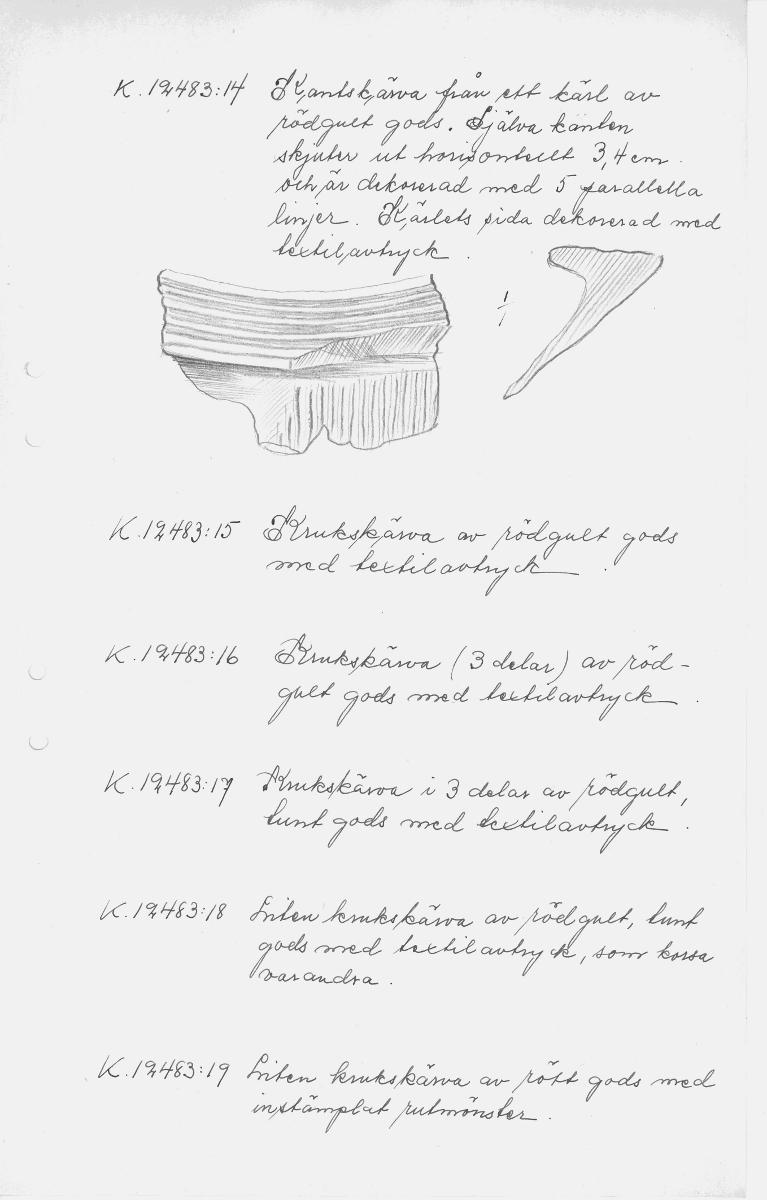 K.12483:14 Kantskärva från ett kärl av
rödgult gods. Själva kanten
skjuter ut horisontellt 3,4 cm
och är dekorerad med 5 parallella
linjer. Kärlets sida dekorerad med
textilavtryck.
1/1
K.12483:15 Krukskärva av rödgult gods
med textilavtryck.
K.12483:16 Krukskärva (3 delar) av röd-
gult gods med textilavtryck.
K.12483:17 Krukskärva i 3 delar av rödgult,
tunt gods med textilavtryck.
K.12483:18 Liten krukskärva av rödgult, tunt
gods med textilavtryck, som korsa
varandra.
K.12483:19 Liten krukskärva av rött gods med
instämplat rutmönster.